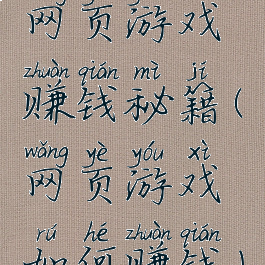 网页游戏
zhuàn qián mì jí
赚钱秘籍(
wǎng yè yóu xì
网页游戏
rú hé zhuàn qián
如何赚钱)